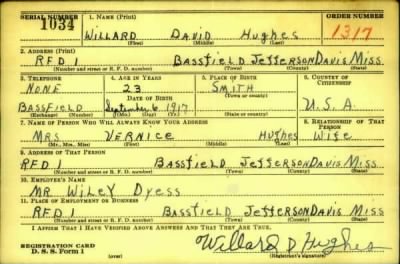 SERIAL NUMBER 1. NAME (Print) ORDER NUMBER
1034 WILLARD DAVID Hughes 1317
(First) (Middle) (Last)
2. ADDRESS (Print)
RFD 1 BASSFIELD JEFFERSON DAVIS MISS
(Number and street or R. F. D. number) (Town) (County) (State)
3. TELEPHONE 4. AGE IN YEARS 5. PLACE OF BIRTH 6. COUNTRY OF CITIZENSHIP
NONE 23 SMITH
DATE OF BIRTH (Town or county)
BASSFIELD September 6 1917 MISS U.S.A.
(Exchange) (Number) (Mo.) (Day) (Yr.) (State or country)
7. NAME OF PERSON WHO WILL ALWAYS KNOW YOUR ADDRESS 8. RELATIONSHIP OF THAT PERSON
MRS VERNICE Hughes Wife
(Mr., Mrs., Miss) (First) (Middle) (Last)
9. ADDRESS OF THAT PERSON
RFD 1 BASSFIELD JEFFERSON DAVIS MISS
(Number and street or R. F. D. number) (Town) (County) (State)
10. EMPLOYER'S NAME
MR WILEY Dyess
11. PLACE OF EMPLOYMENT OR BUSINESS
RFD 1 BASSFIELD JEFFERSON DAVIS MISS
(Number and street or R. F. D. number) (Town) (County) (State)
I AFFIRM THAT I HAVE VERIFIED ABOVE ANSWERS AND THAT THEY ARE TRUE.
REGISTRATION CARD Willard D Hughes
D. S. S. Form 1 (over) (Registrant's signature)